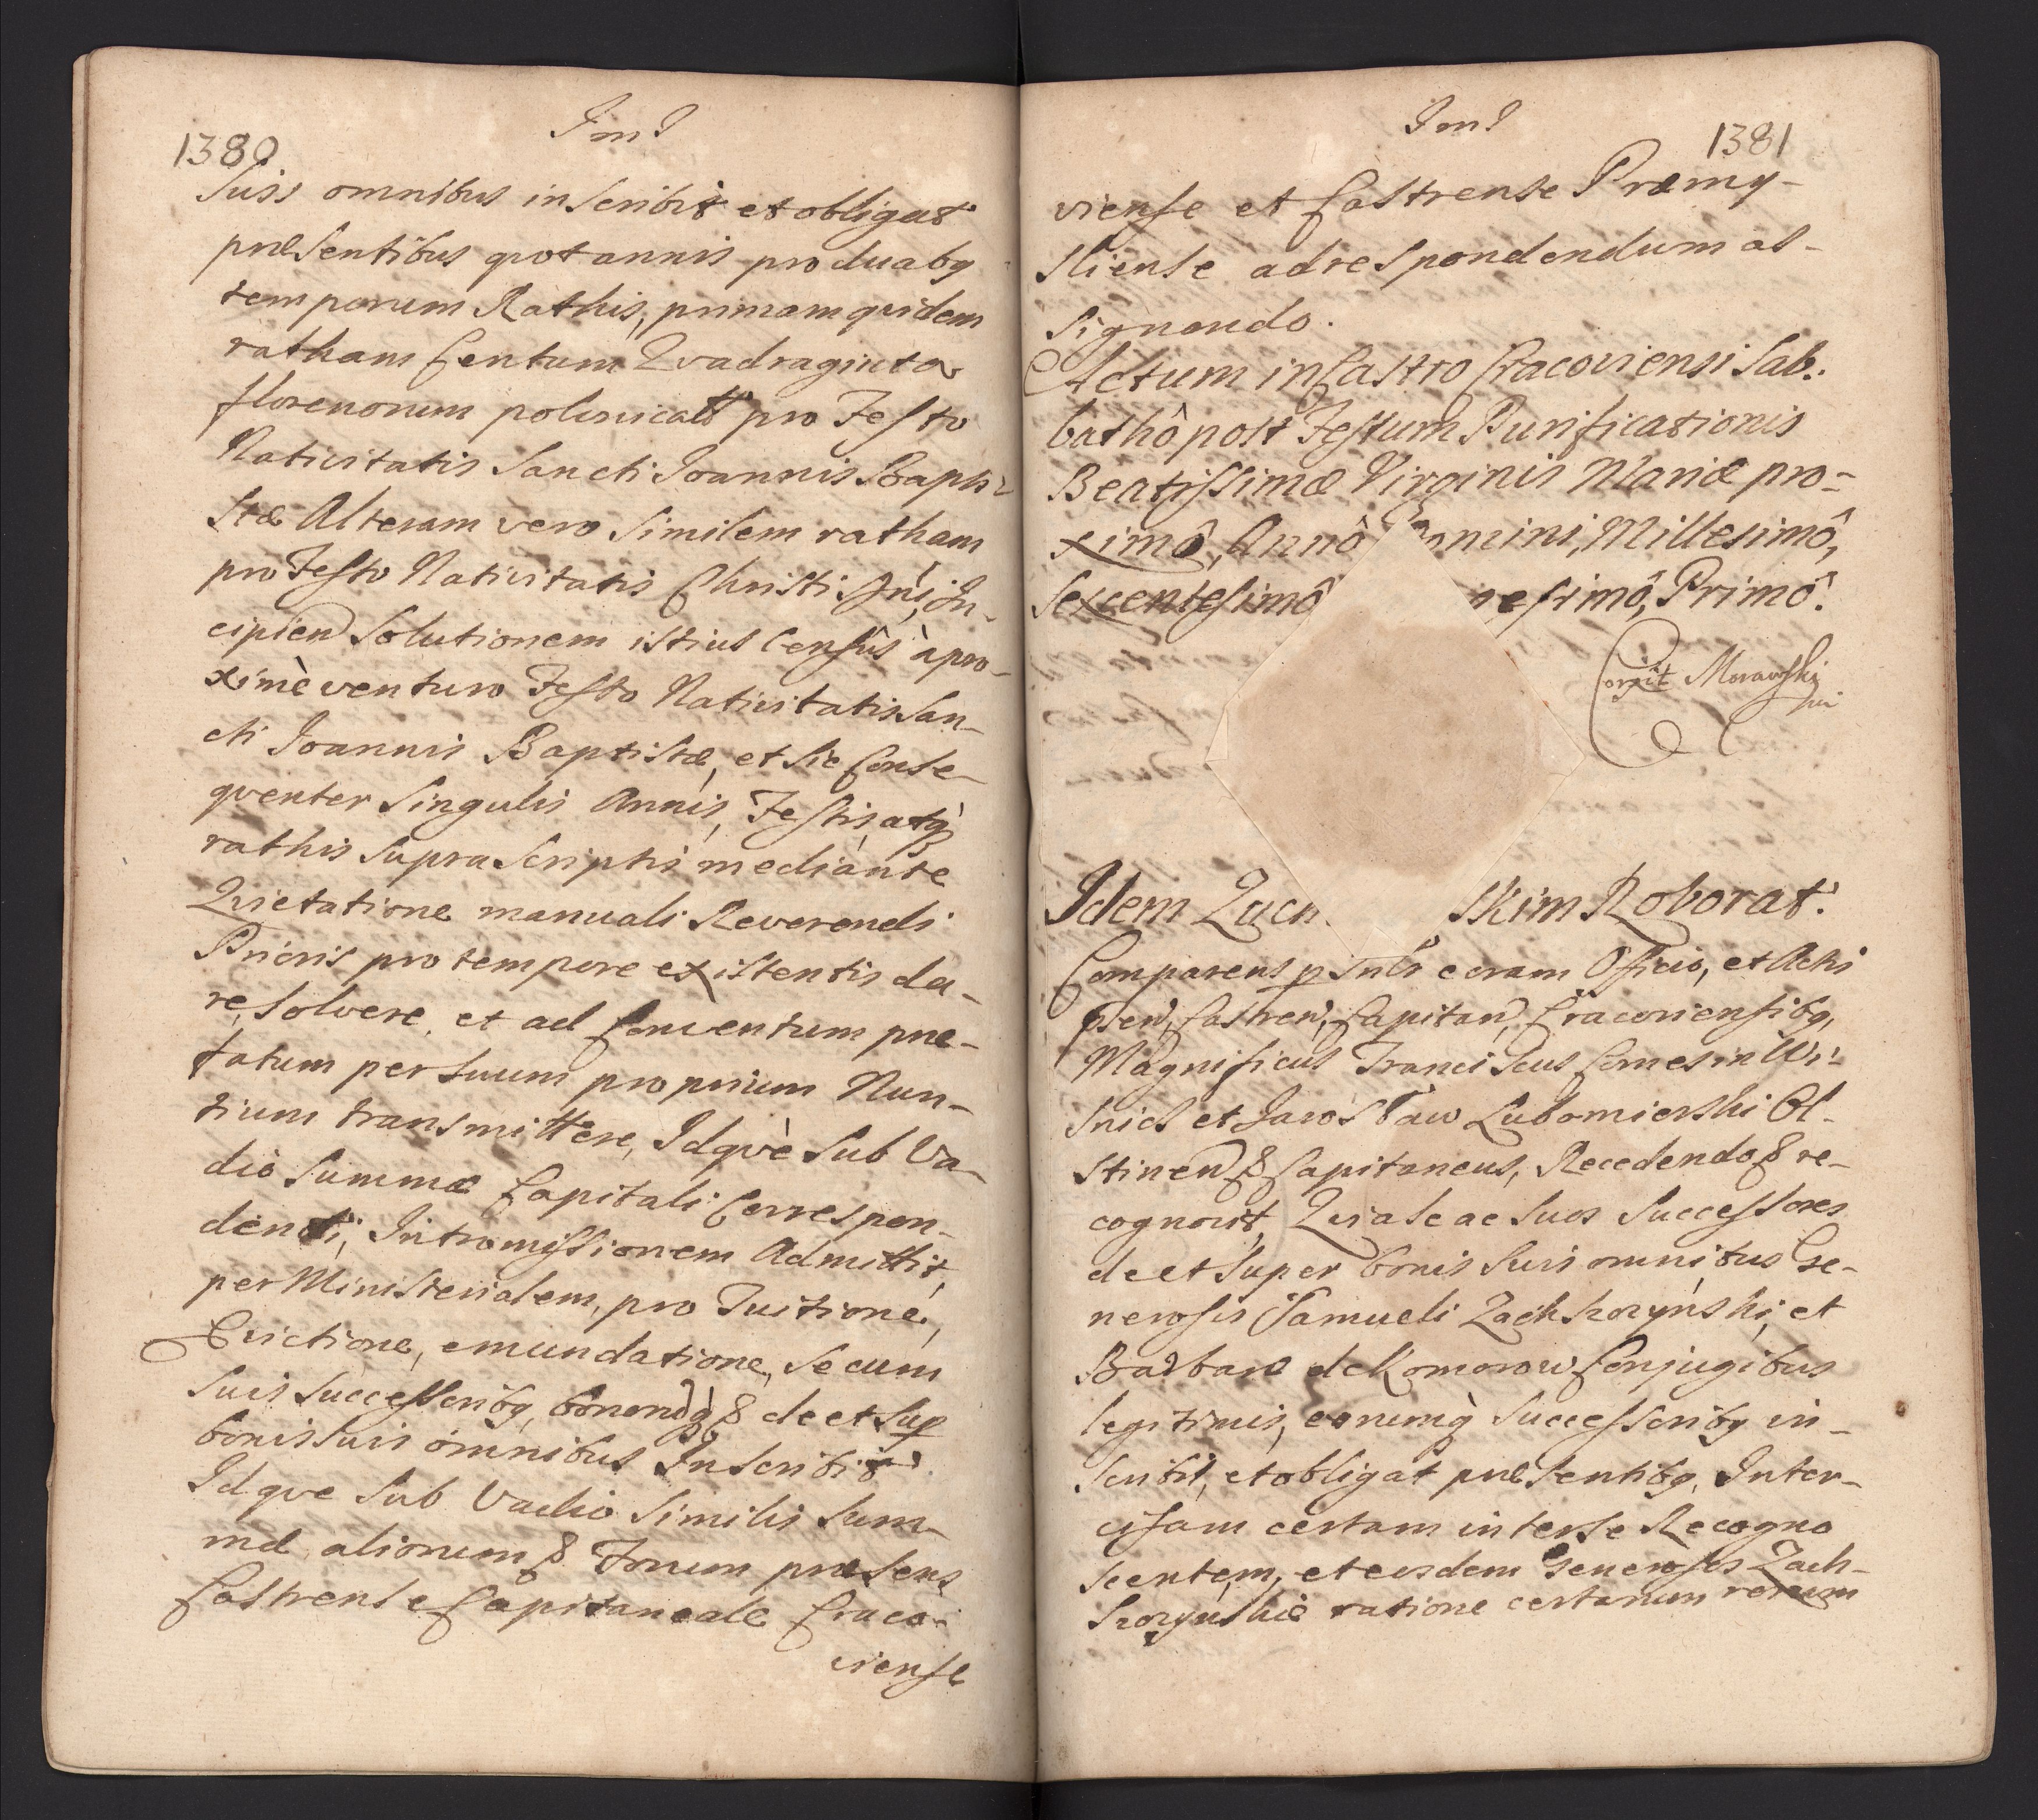 1380
Im?
Suis omnibus inscribit et obligat
præsentibus quotannis pro duabq
temporum Rathis, primam quidem
ratham Centum Quadraginta
florenorum polonicalt pro Festo
Nativitatis Sancti Joannis Bapti-
stæ Alteram vero similem ratham
pro Festo Nativitatis Christi Dni, In-
cipien solutionem istius Censûs à pro-
ximè venturo Festo Nativitatis San-
cti Joannis Baptistæ, et sic Conse-
qventer Singulis Annis, Festis, atq
rathis supra scriptis mediante
Qvietatione manuali Reverendi
Prioris pro tempore existentis da-
re, solvere, et ad Conventum præ-
fatum per suum proprium Nun-
tium transmittere, Idqvè sub Va-
dio Summæ Capitali Correspon-
denti, Intromissionem Admittit,
per Ministerialem, pro Tuitione,
Evictione, emundatione, se cum
suis successoribq, bonorq & de et sup
bonis suis omnibus Inscribit
Idqve sub Vadio similis Sum-
mæ, alionum & Forum præsens
Castrense Capitaneale Craco-
viense
Im?
1381
viense et Castrense Præmy-
sliense ad respondendum as-
signando.
Actum in Castro Cracoviensi Sab:
bathô post Festum Purificationis
Beatissimæ Virginis Mariæ pro-
ximô, Annô Domini, Millesimô,
Sexcentesimô nesimô, Primô.
Corxit Morawski
Idem Zach. skim Roborat.
Comparens p coram Officio, et Actis
psen, Castren, Capitan, Cracoviensibq,
Magnificus Franciscus Comes in Wi-
snicz et Jarosław Lubomierski Ol-
stinen & Capitaneus, Recedendo & re-
cognovit, Qvia se ac suos Successores
de et super bonis suis omnibus Ge-
nerosis Samueli Zachkorzynski, et
Barbaræ de Komorow Conjugibus
legitimis, eorumq successoribq in-
scribit, et obligat præsentibq, Inter-
cisam certam inter se Recogno
scentem, et eisdem Generosis Zach-
korzynskie ratione certarum rerum